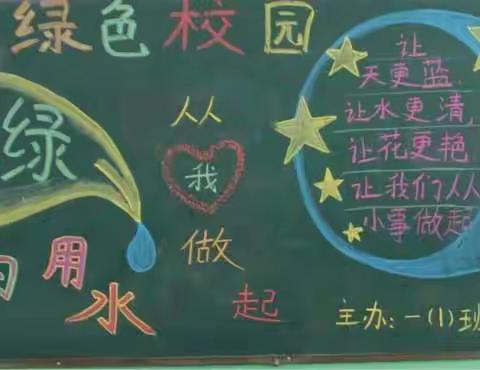 绿色校园
绿
约用水
从从
我
做
起
让
天更蓝
让水更清
让花更艳
让我们从从
小事做起
主办:一(1)班